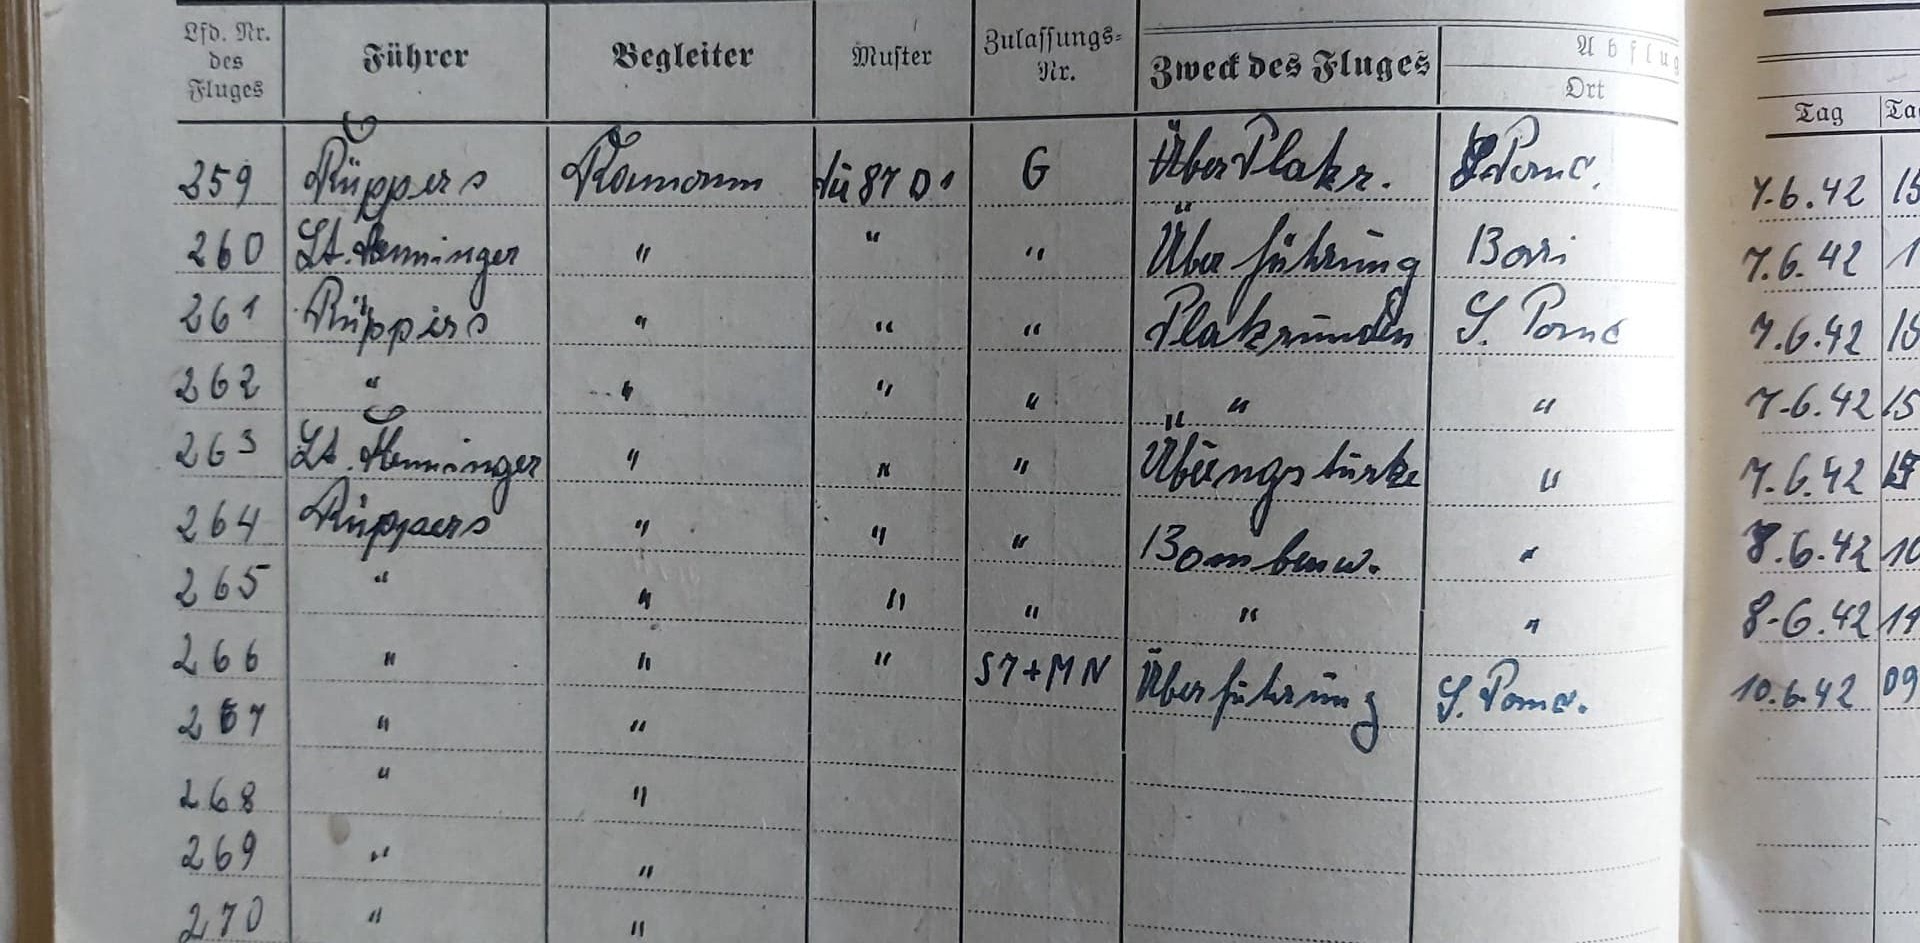 Lfd. Nr. des Fluges Führer Begleiter Muster Zulassungs-Nr. Zweck des Fluges Abflug Ort Tag
259 Rüppers Ju 87 D1 G Über Plakr. S. Pomc. 7.6.42 15
260 Lt. Henninger " " " Überführung Bari 7.6.42 1
261 Rüppers " " " Plakrunden S. Pomc 7.6.42
262 " " " " " " 7.6.42 15
263 Lt. Henninger " " " Übungs türke " 7.6.42
264 Rüppers " " " Bombenw. " 8.6.42 10
265 " " " " " " 8.6.42
266 " " " S7+MN Überführung S. Pomc. 10.6.42 09
267 " "
268 " "
269 " "
270 " "